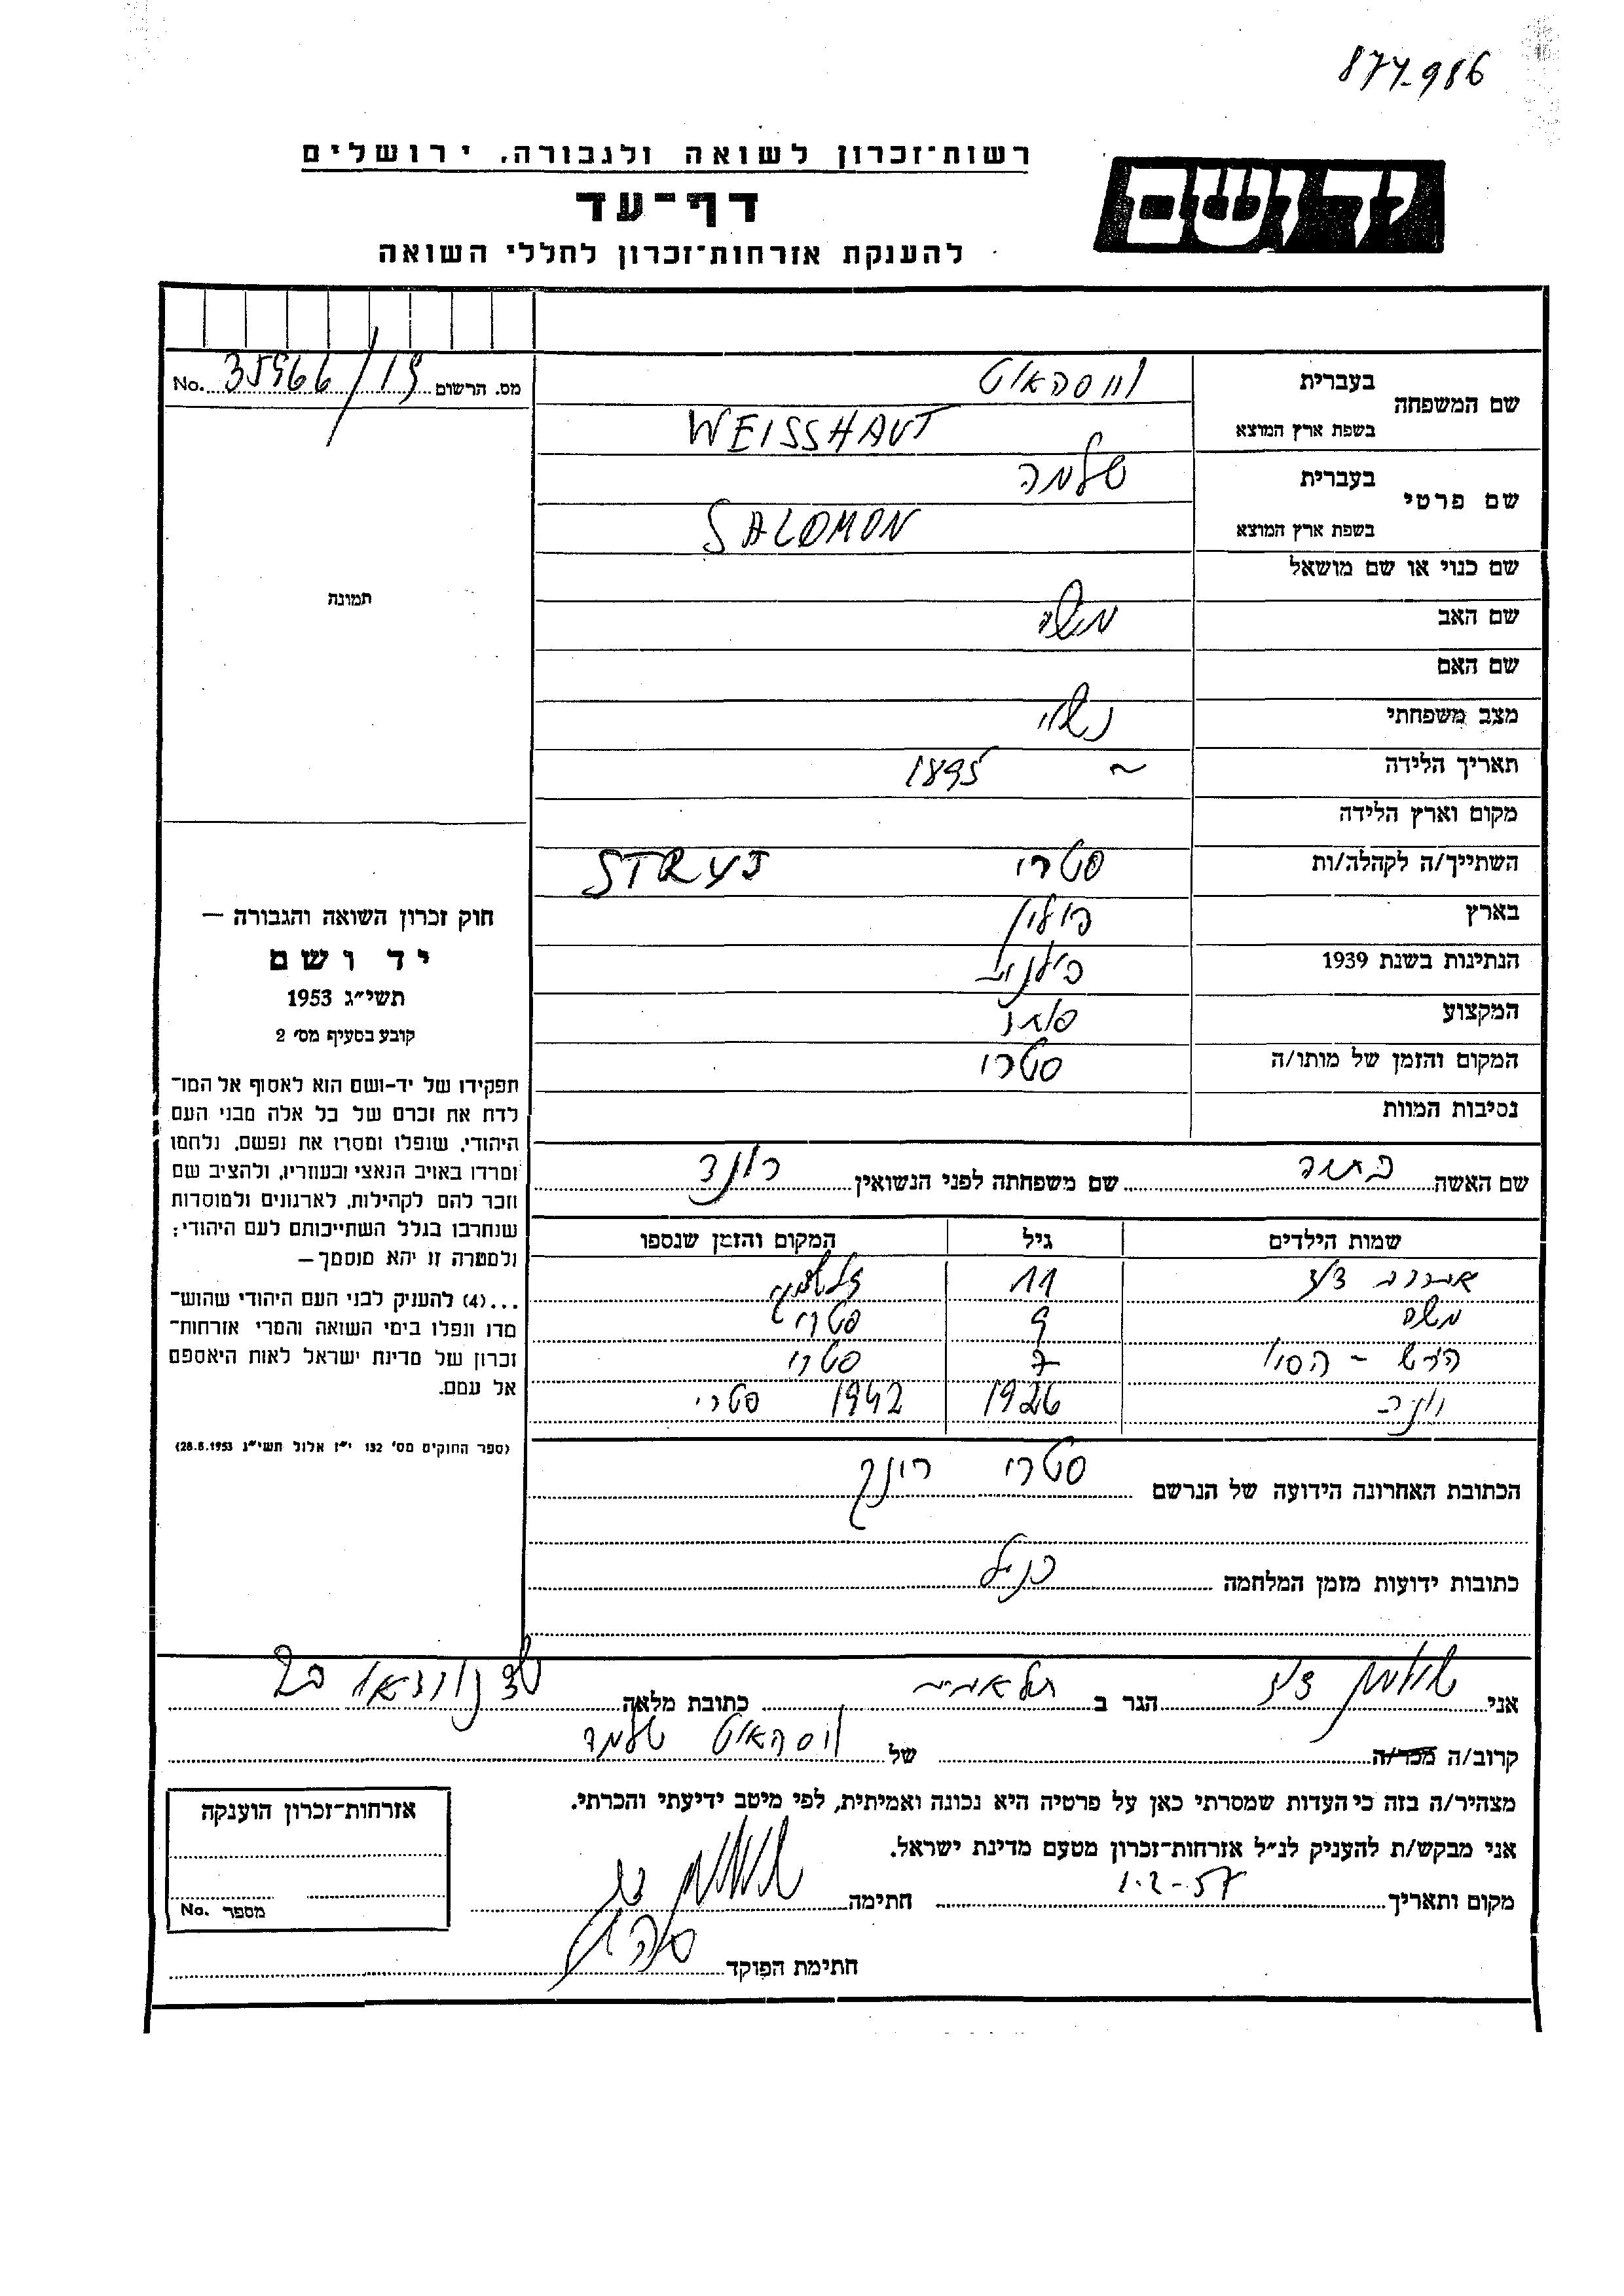 877-986
רשות־זכרון לשואה ולגבורה, ירושלים
יד ושם
דף־עד
להענקת אזרחות־זכרון לחללי השואה
מס. הרשום 35966/19 No.
שם המשפחה
בעברית וויסהאוט
בשפת ארץ המוצא WEISSHAUT
שם פרטי
בעברית שלמה
בשפת ארץ המוצא SALOMON
שם כנוי או שם מושאל
תמונה
שם האב משה
שם האם
מצב משפחתי נשוי
תאריך הלידה ~ 1895
מקום וארץ הלידה
השתייך/ה לקהלה/ות סטרי STRYJ
בארץ פולין
הנתינות בשנת 1939 פולנית
המקצוע סוחר
המקום והזמן של מותו/ה סטרי
נסיבות המוות
חוק זכרון השואה והגבורה —
יד ושם
תשי״ג 1953
קובע בסעיף מס׳ 2
תפקידו של יד-ושם הוא לאסוף אל המו־
לדת את זכרם של כל אלה מבני העם
היהודי, שנפלו ומסרו את נפשם, נלחמו
ומרדו באויב הנאצי ובעוזריו, ולהציב שם
וזכר להם לקהילות, לארגונים ולמוסדות
שנחרבו בגלל השתייכותם לעם היהודי;
ולמטרה זו יהא מוסמך —
...(4) להעניק לבני העם היהודי שהוש־
מדו ונפלו בימי השואה והמרי אזרחות־
זכרון של מדינת ישראל לאות היאספם
אל עמם.
(ספר החוקים מס׳ 132 י״ז אלול תשי״ג 28.8.1953)
שם האשה שם משפחתה לפני הנשואין
שמות הילדים גיל המקום והזמן שנספו
11
משה 9 סטרי
הירש - 7 סטרי
1926 1942 סטרי
הכתובת האחרונה הידועה של הנרשם סטרי רינק
כתובות ידועות מזמן המלחמה כנ״ל
אני שולמית הגר ב תל אביב כתובת מלאה
קרוב/ה מכר/ה של וויסהאוט שלמה
מצהיר/ה בזה כי העדות שמסרתי כאן על פרטיה היא נכונה ואמיתית, לפי מיטב ידיעתי והכרתי.
אני מבקש/ת להעניק לנ״ל אזרחות־זכרון מטעם מדינת ישראל.
מקום ותאריך 1.2.-57 חתימה
חתימת הפוקד
אזרחות־זכרון הוענקה
מספר No.